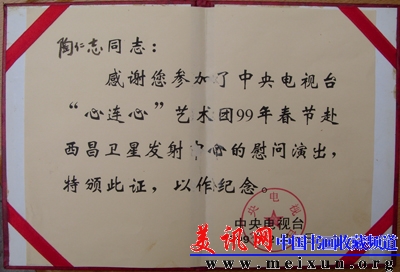 陶仁志同志：
感谢您参加了中央电视台
“心连心”艺术团99年春节赴
西昌卫星发射中心的慰问演出，
特颁此证，以作纪念。
中央电视台
美讯网 中国书画收藏频道
www.meixun.org